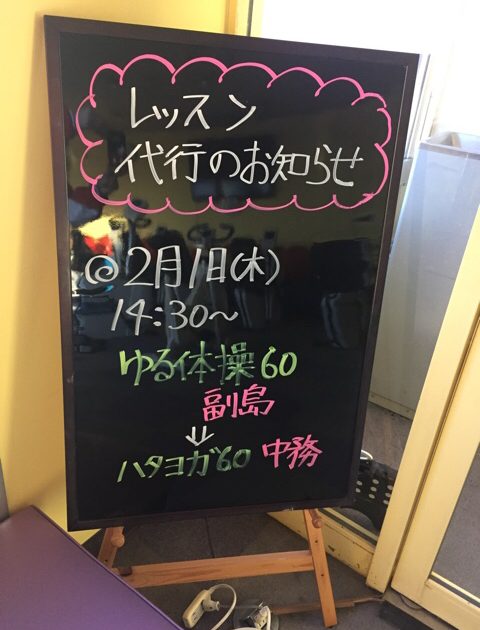 レッスン
代行のお知らせ
◎2月1日(木)
14:30～
ゆる体操60
副島
↓
ハタヨガ60 中務